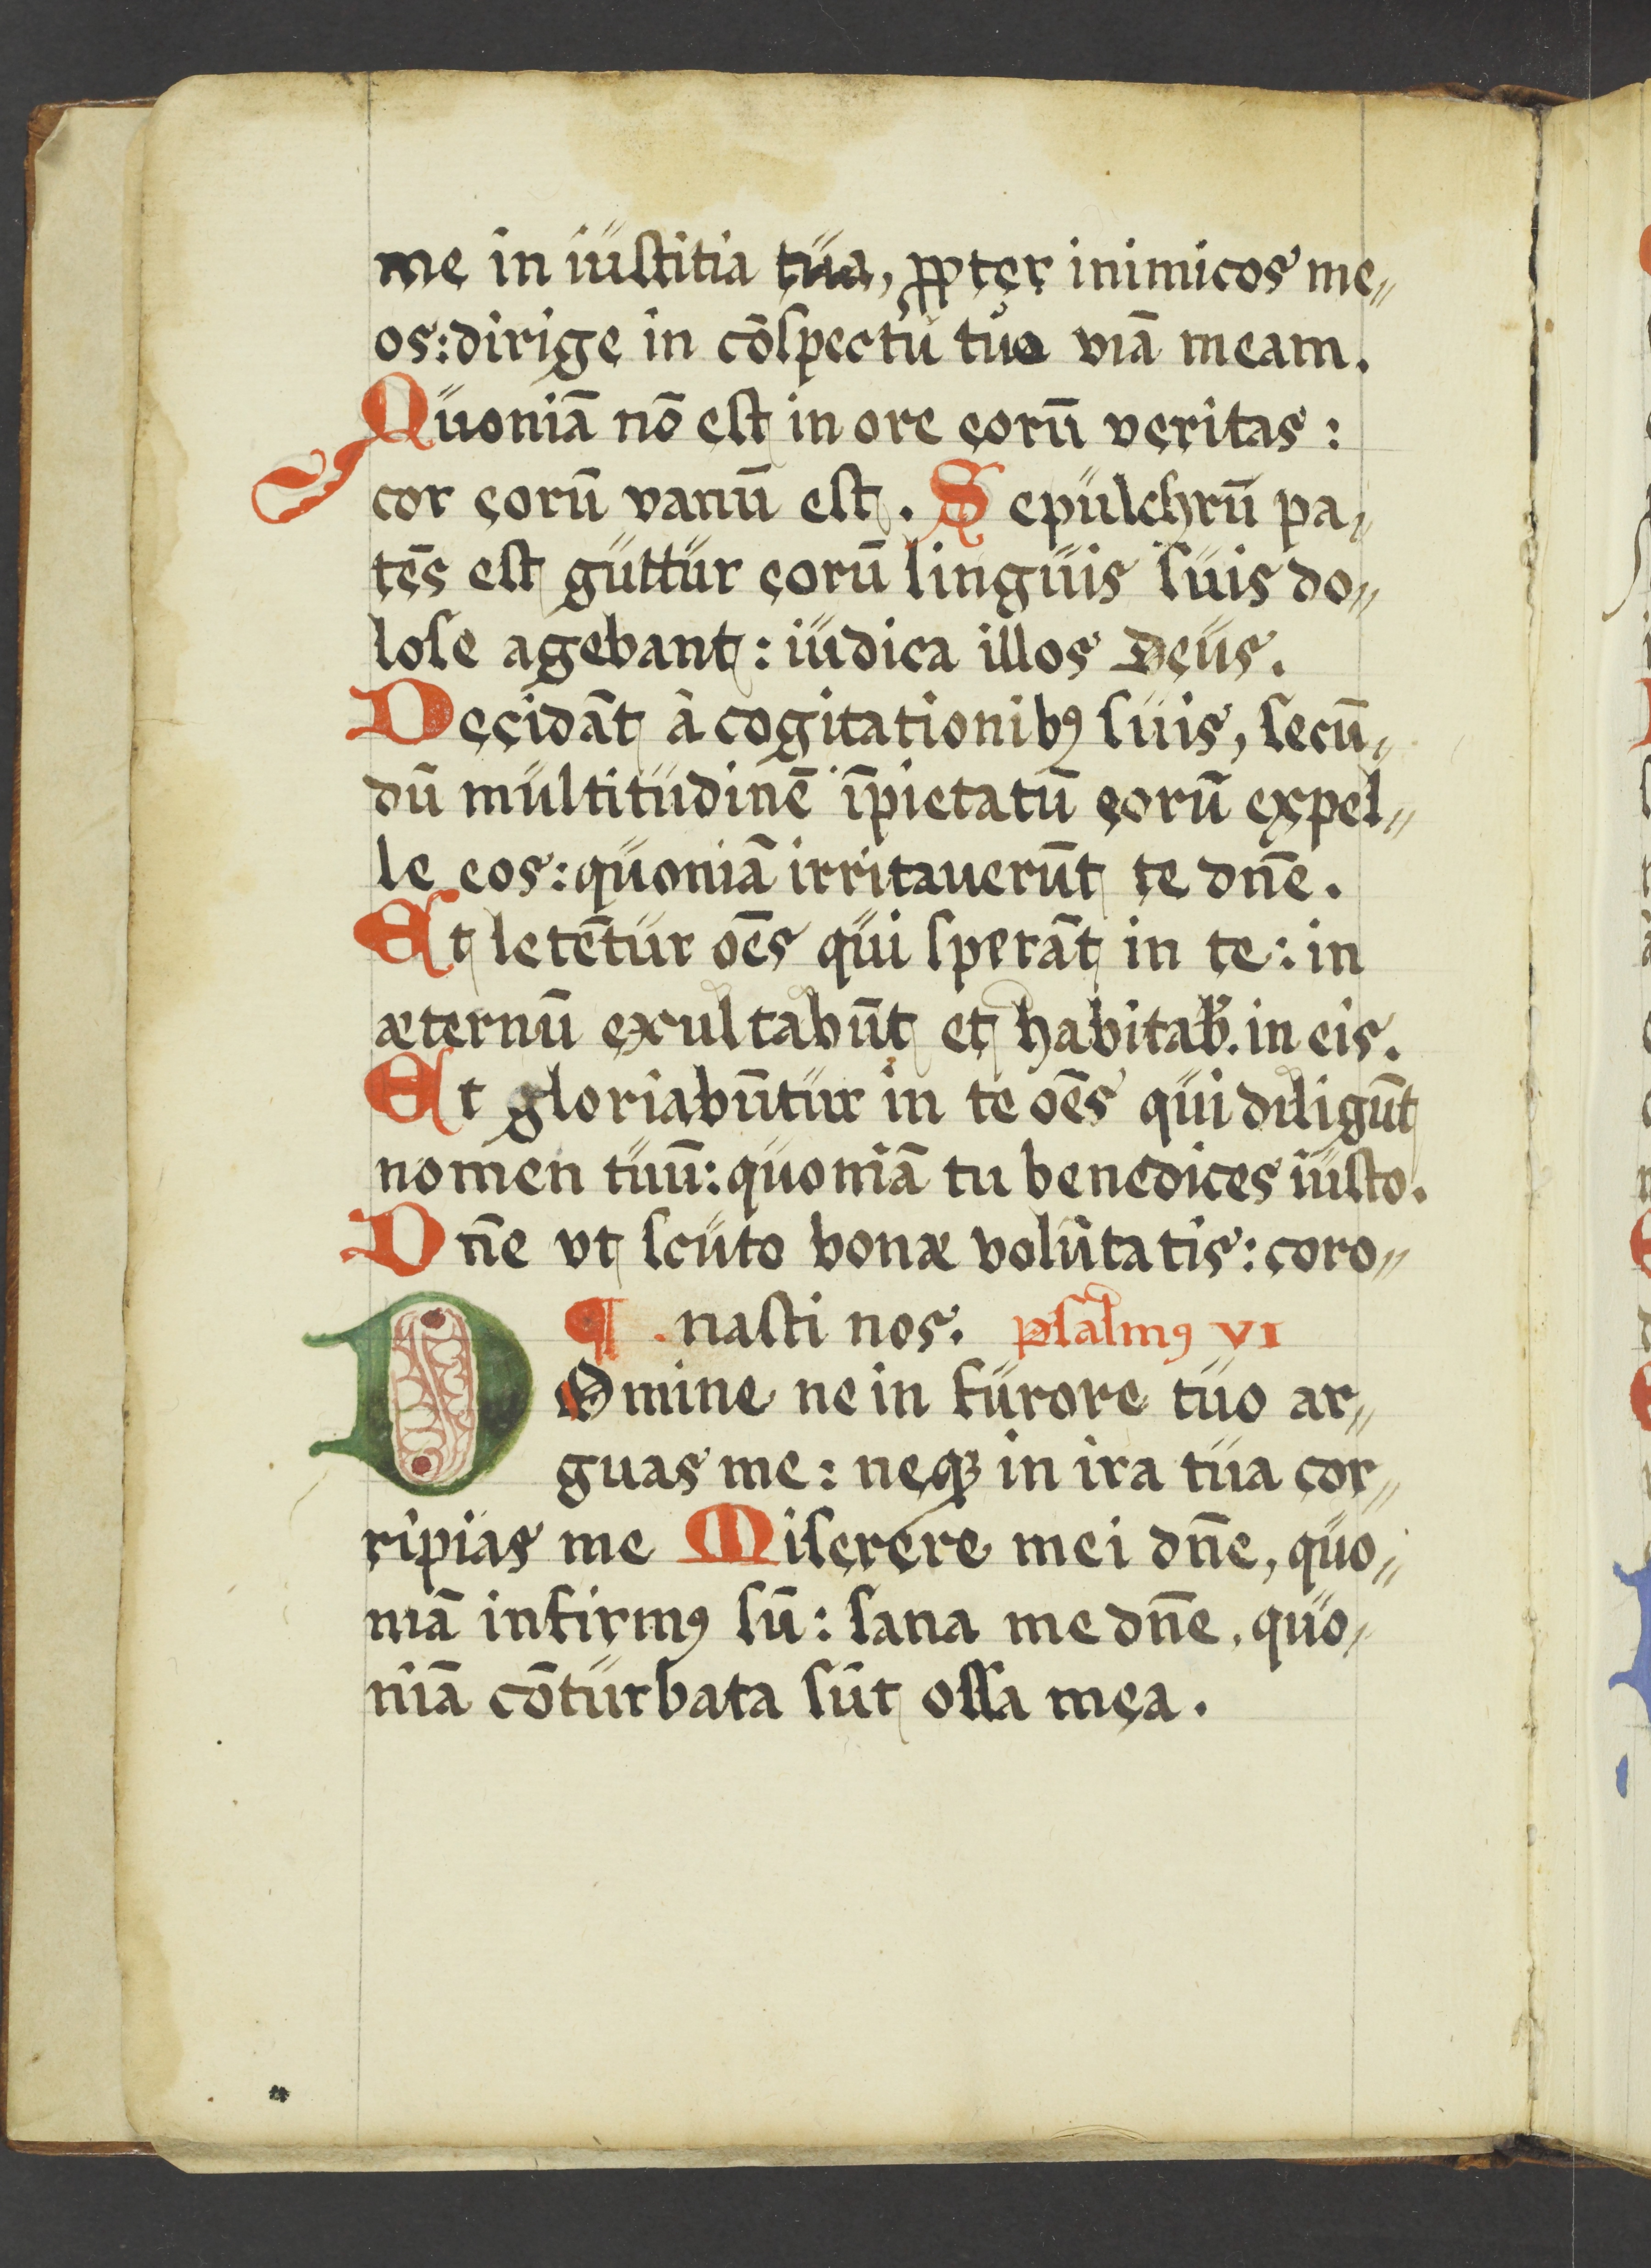 me in iustitia tua, ꝓpter inimicos me„
os: dirige in cōspectu tuo viā meam.
Quoniā nō est in ore eorū veritas:
cor eorū vanū est. Sepulchrū pa„
tēs est guttur eorū linguis suis do„
lose agebant: iudica illos Deus.
Decidāt à cogitationibꝰ suis, secū„
dū multitudinē īpietatū eorū expel„
le eos: quoniā irritauerūt te dn̄e.
Et letētur oēs qui sperāt in te: in
æternū exultabūt et habitab. in eis.
Et gloriabūtur in te oēs qui diligūt
nomen tuū: quoniā tu benedices iusto.
Dn̄e vt scuto bonæ volūtatis: coro„
¶ nasti nos. psalmꝰ VI
DOmine ne in furore tuo ar„
guas me: neqꝫ in ira tua cor„
ripias me Miserere mei dn̄e, quo„
niā infirmꝰ sū: sana me dn̄e, quo„
niā cōturbata sūt ossa mea.